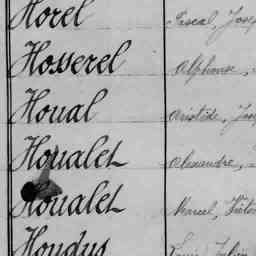 Horel Pascal, Jose
Hosserel Alphonse,
Houal Aristide, Jose
Houalet Alexandre,
Houalet Marcel, Victor
Houdus Louis, Julien